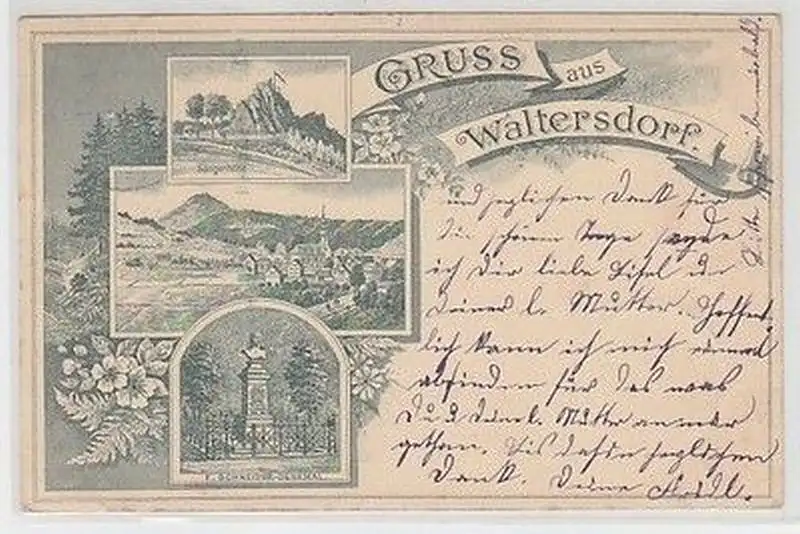 GRUSS aus
Waltersdorf.
Sängerhöhe
F. SCHNEIDER-DENKMAL
und herzlichen Dank für
die schönen Tage sende
ich Dir liebe Lisel u
Deiner l. Mutter. Hoffent-
lich kann ich mich einmal
abfinden für das was
Du u Deine l. Mutter an mir
gethan. Bis dahin herzlichen
Dank. Deine